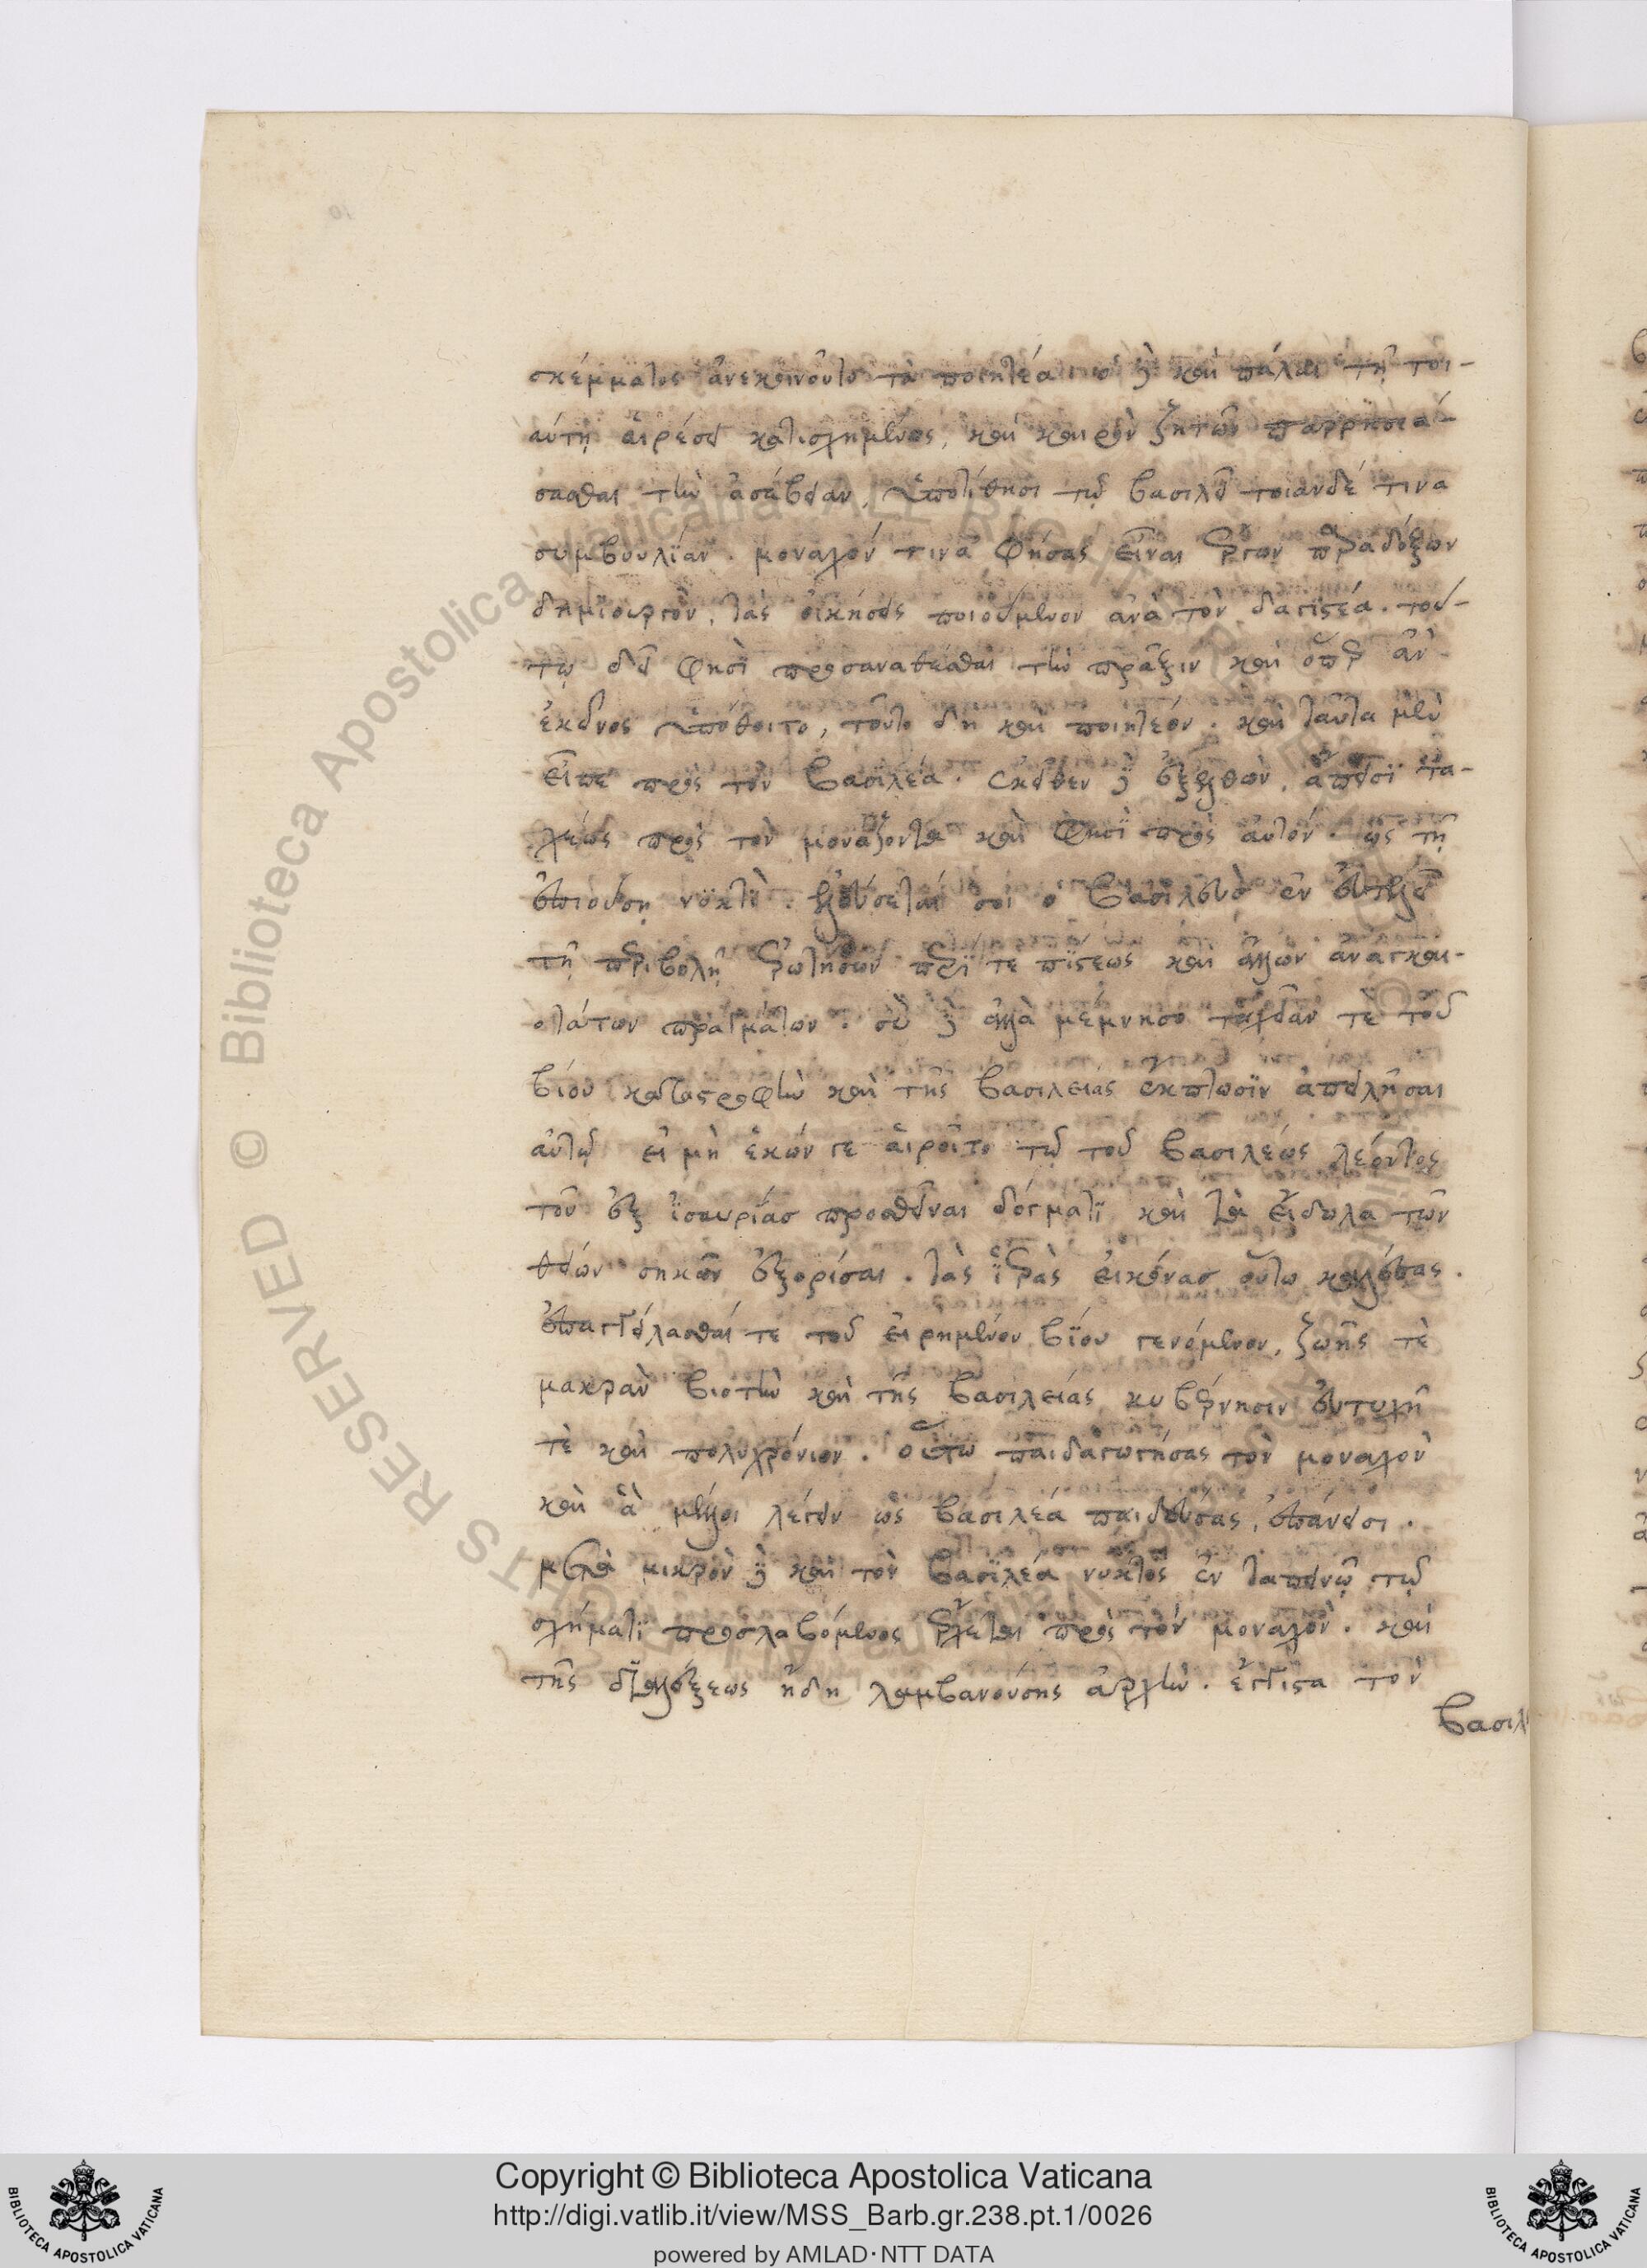 σκέμματος ἀνεκοινοῦτο τὰ ποιητέα. ὁ δὲ καὶ πάλαι τῇ τοι-
αύτῃ αἱρέσει κατισχημένος, καὶ καιρὸν ζητῶν παρρησιά-
σασθαι τὴν ἀσέβειαν, ὑποτίθησι τῷ βασιλεῖ τοιάνδέ τινα
συμβουλΐαν. μοναχόν τινα φήσας εἶναι ἔργων παραδόξων
δημϊουργὸν, τὰς οἰκήσεις ποιούμενον ἀνὰ τὸν δαγιστέα. τού-
τῳ δεῖ φησῒ προσαναθέσθαι τὴν πράξιν καὶ ὅπερ ἂν
ἐκεῖνος ὑπόθοιτο, τοῦτο δὴ καὶ ποιητεόν. καὶ ταῦτα μὲν
εἶπε πρὸς τὸν βασϊλέα. ἐκεῖθεν δὲ ἐξελθὼν, ἄπεισϊ τα-
χέως πρὸς τὸν μονάζοντα καὶ φησῒ πρὸς αὐτόν. ὡς τῇ
ἐπιούσῃ νϋκτῒ. ἐλεύσεταί σοι ὁ βασιλεὺς ἐν εὐτελεῖ
τῇ περιβολῇ ἐρωτήσων περΐ τε πΐστεως καὶ ἄλλων ἀναγκαι-
οτάτων πραγμάτων. σὺ δὲ ἀλλὰ μέμνησο ταχεῖαν τὲ τοῦ
βίου καταστροφὴν καὶ τῆς βασιλείας ἔκπτωσϊν ἀπειλῆσαι
αὐτῷ εἰ μὴ ἑκών γε αἱροῖτο τῷ τοῦ βασιλέως λέοντος
τοῦ ἐξ ἰσαυρίας προσθεῖναι δόγματϊ καὶ τὰ εἴδωλα τῶν
θείων σηκῶν ἐξορίσαι. τὰς ἱερὰς εἰκόνας οὕτω καλέσας.
ἐπαγγείλασθαί τε τοῦ εἰρημένου βΐου γενόμενον, ζωῆς τὲ
μακρὰν βιοτὴν καὶ τῆς βασιλείας κυβέρνησιν εὐτυχῆ
τὲ καὶ πολυχρόνιον. οὕτω παιδαγωγήσας τὸν μοναχὸν
καὶ ἃ μέλλοι λέγειν ὡς βασιλέα παιδεύσας, ἐπάνεισι.
μετὰ μικρὸν δὲ καὶ τὸν βασϊλέα νυκτὸς ἐν ταπεινῷ τῷ
σχήματϊ προσλαβόμενος ἔρχεται πρὸς τὸν μοναχὸν. καὶ
τῆς διαλέξεως ἤδη λαμβανούσης ἀρχὴν. ἔγγιστα τὸν
βασιλ
Copyright © Biblioteca Apostolica Vaticana
http://digi.vatlib.it/view/MSS_Barb.gr.238.pt.1/0026
powered by AMLAD·NTT DATA
BIBLIOTECA APOSTOLICA VATICANA
BIBLIOTECA APOSTOLICA VATICANA